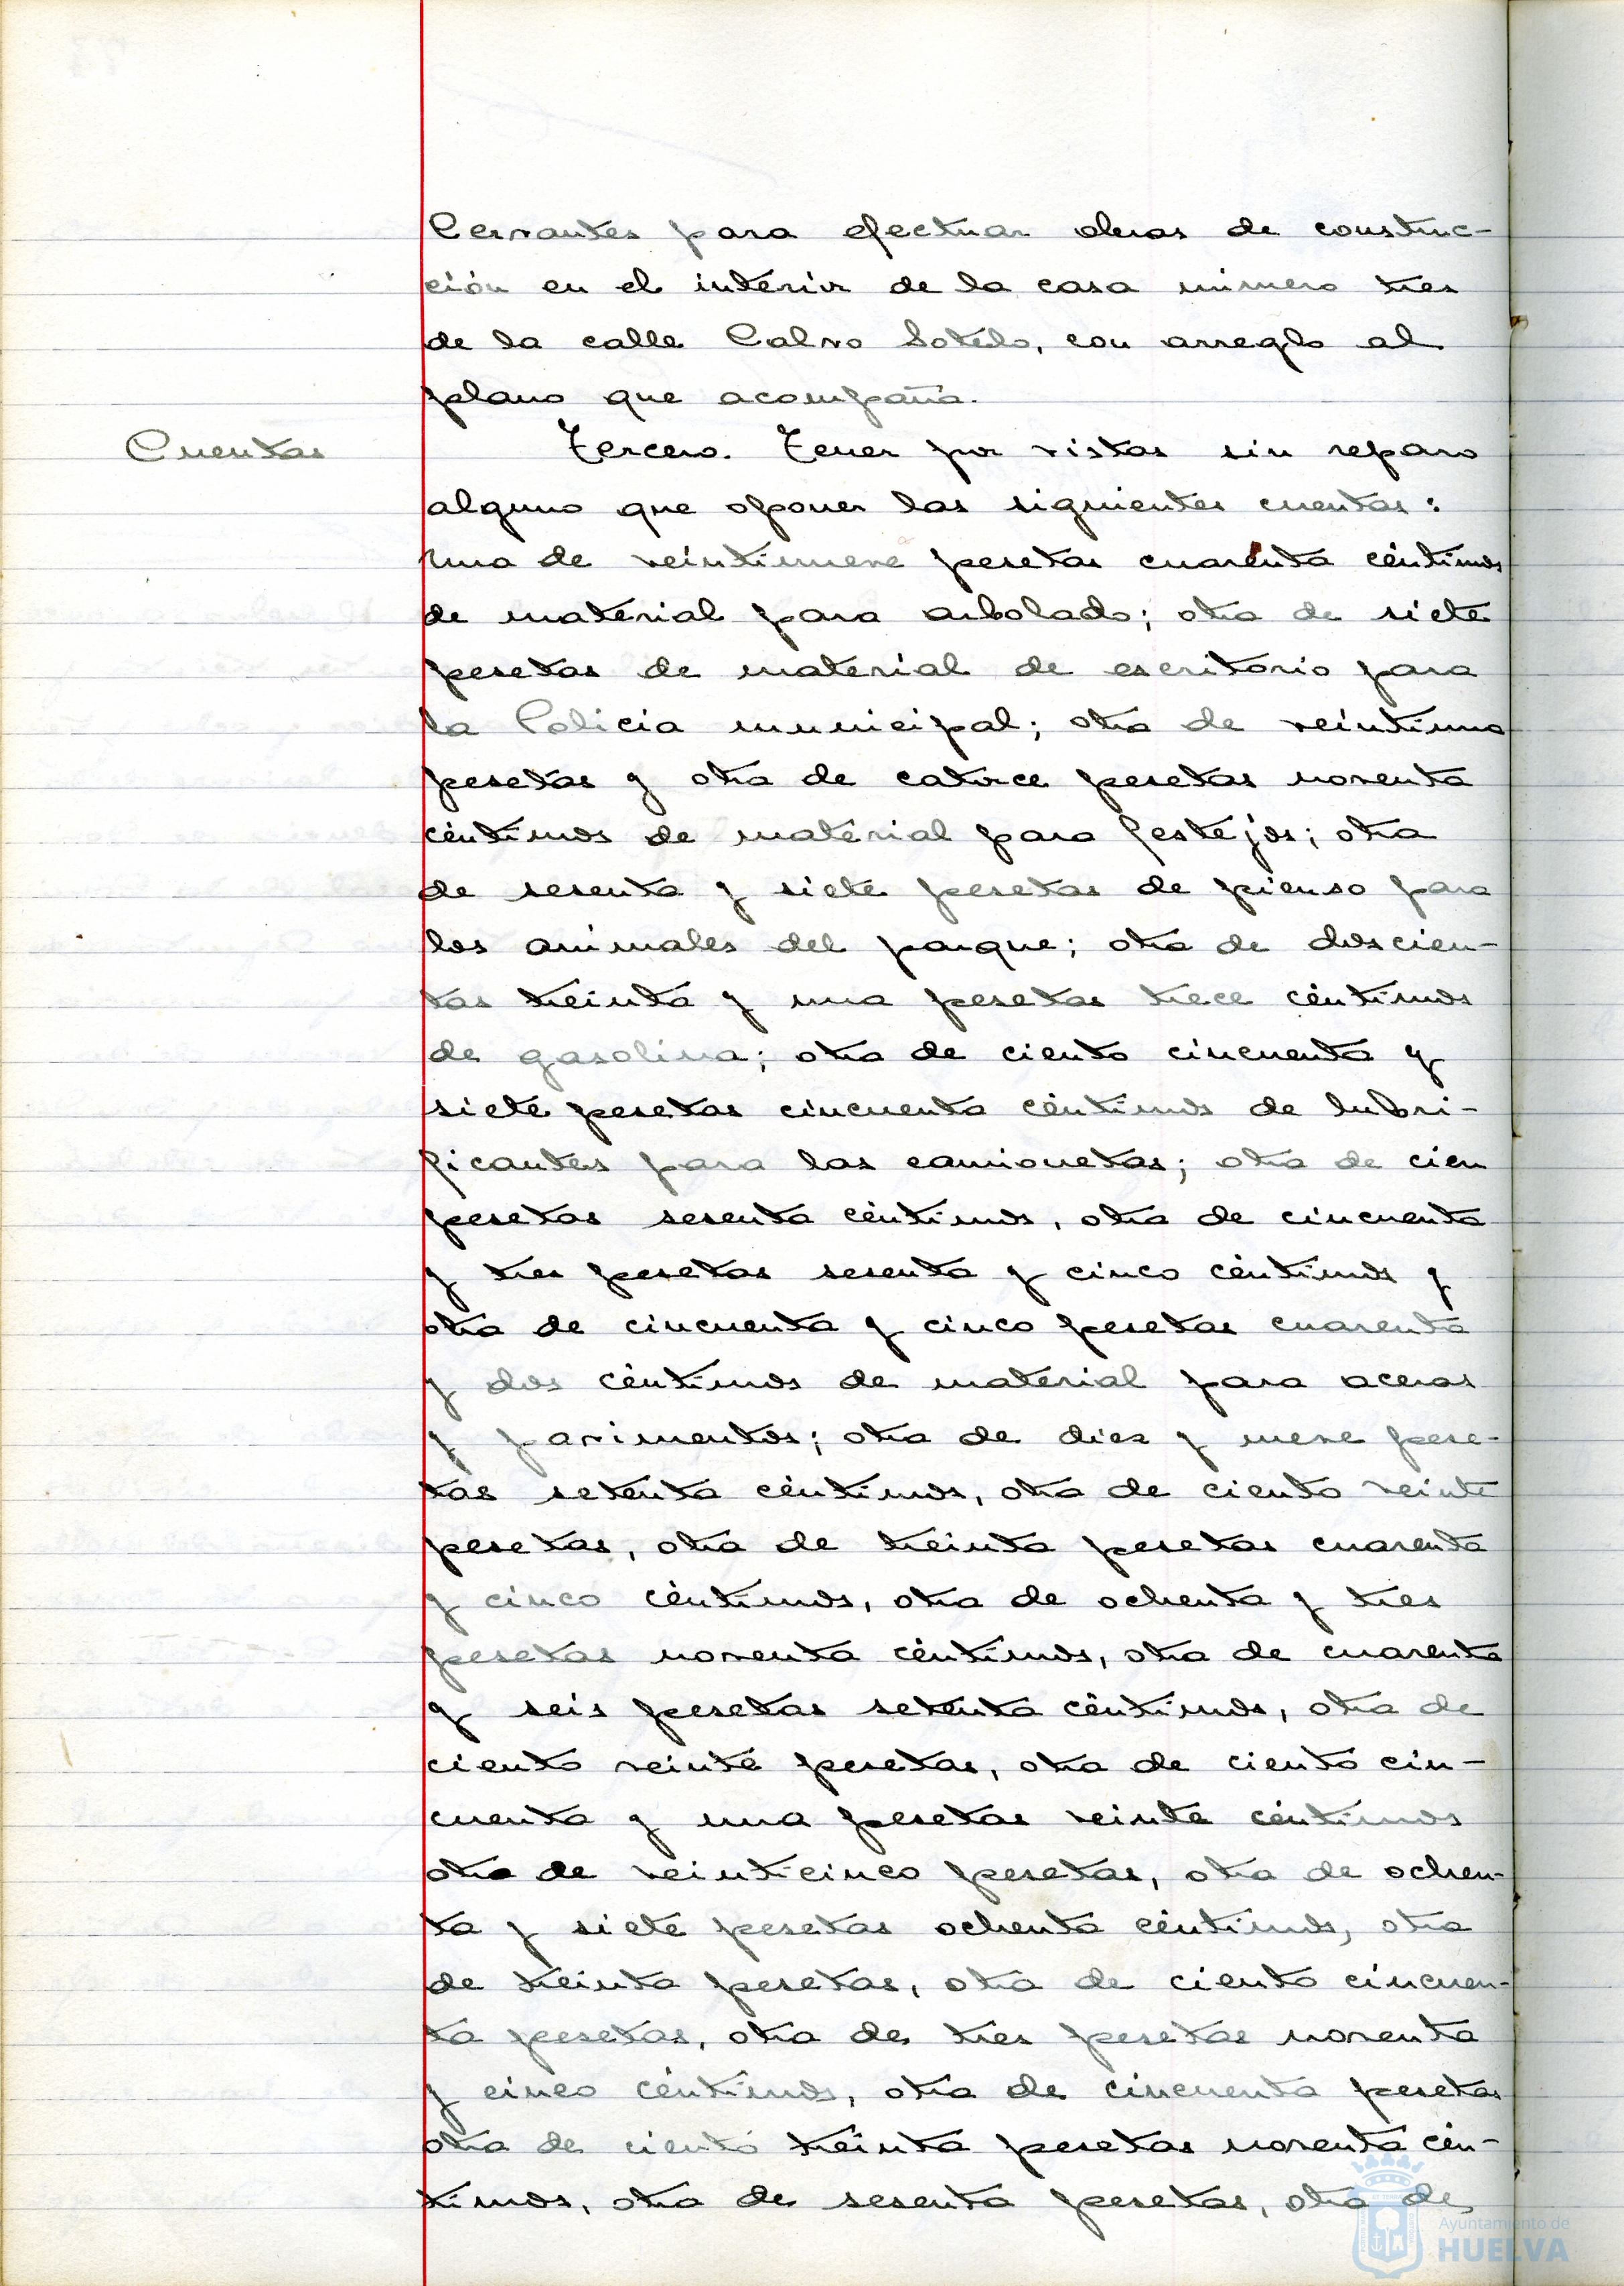 Cervantes para efectuar obras de construc-
ción en el interior de la casa número tres
de la calle Calvo Sotelo, con arreglo al
plano que acompaña.
Cuentas
Tercero. Tener por vistas sin reparo
alguno que oponer las siguientes cuentas:
una de veintinueve pesetas cuarenta céntimos
de material para arbolado; otra de siete
pesetas de material de escritorio para
la Policia municipal; otra de veintiuna
pesetas y otra de catorce pesetas noventa
céntimos de material para festejos; otra
de sesenta y siete pesetas de pienso para
los animales del parque; otra de doscien-
tas treinta y una pesetas trece céntimos
de gasolina; otra de ciento cincuenta y
siete pesetas cincuenta céntimos de lubri-
ficantes para las camionetas; otra de cien
pesetas sesenta céntimos, otra de cincuenta
y tres pesetas sesenta y cinco céntimos y
otra de cincuenta y cinco pesetas cuarenta
y dos céntimos de material para aceras
y pavimentos; otra de diez y nueve pese-
tas setenta céntimos, otra de ciento veinte
pesetas, otra de treinta pesetas cuarenta
y cinco céntimos, otra de ochenta y tres
pesetas noventa céntimos, otra de cuarenta
y seis pesetas setenta céntimos, otra de
ciento veinte pesetas, otra de ciento cin-
cuenta y una pesetas veinte céntimos
otra de veinticinco pesetas, otra de ochen-
ta y siete pesetas ochenta céntimos, otra
de treinta pesetas, otra de ciento cincuen-
ta pesetas, otra de tres pesetas noventa
y cinco céntimos, otra de cincuenta pesetas
otra de ciento treinta pesetas noventa cén-
timos, otra de sesenta pesetas, otra de
Ayuntamiento de
HUELVA